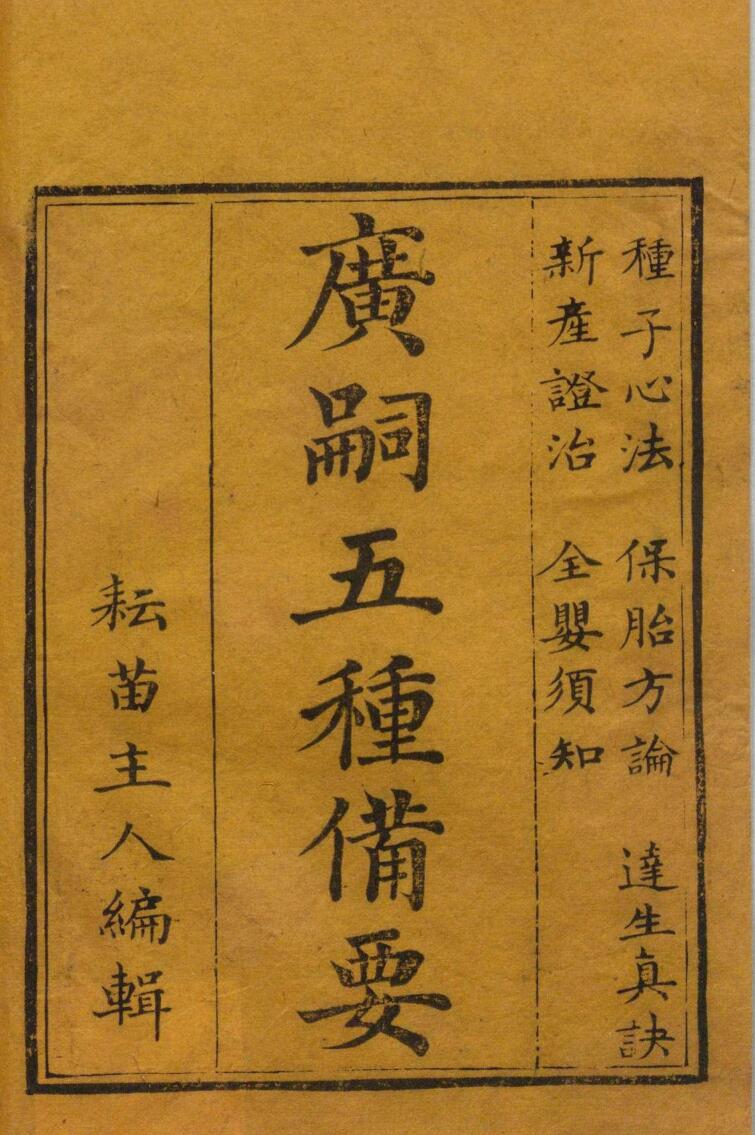 種子心法 保胎方論 達生真訣
新產證治 全嬰須知
廣嗣五種備要
耘苗主人編輯